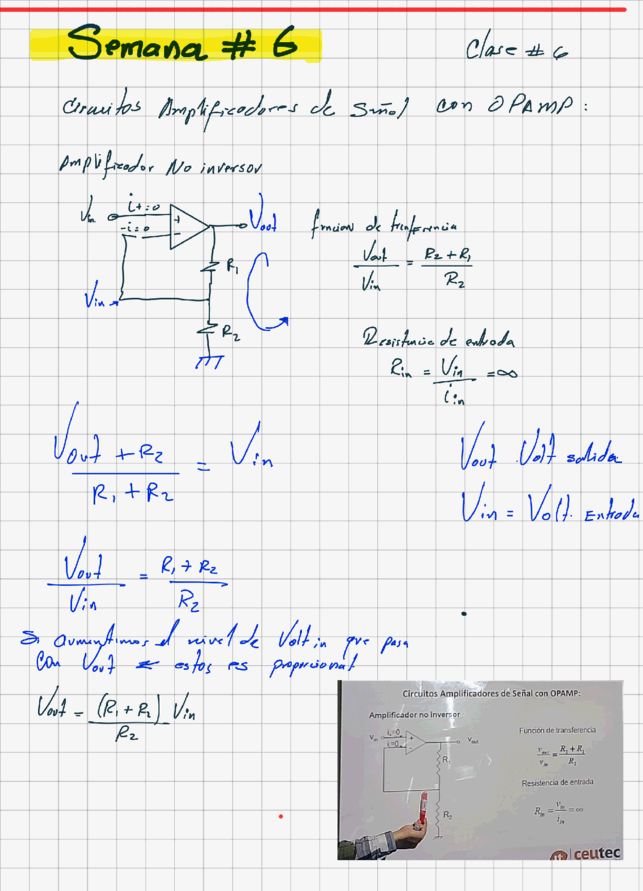 Semana # 6
Clase # 6
Circuitos Amplificadores de Señal con OPAMP:
Amplificador No inversor
Vin i+=0
-i=0
+
-
Vout
R1
Vin
R2
funcion de tranferencia
Vout / Vin = R2 + R1 / R2
Resistencia de entrada
Rin = Vin / iin = ∞
Vout + R2 / R1 + R2 = Vin
Vout Volt salida
Vin = Volt. Entrada
Vout / Vin = R1 + R2 / R2
Si aumentimos el nivel de Volt in que pasa
con Vout ← estos es proporcional
Vout = (R1 + R2) / R2 Vin
Circuitos Amplificadores de Señal con OPAMP:
Amplificador no Inversor
Función de transferencia
Resistencia de entrada
R2
ceutec